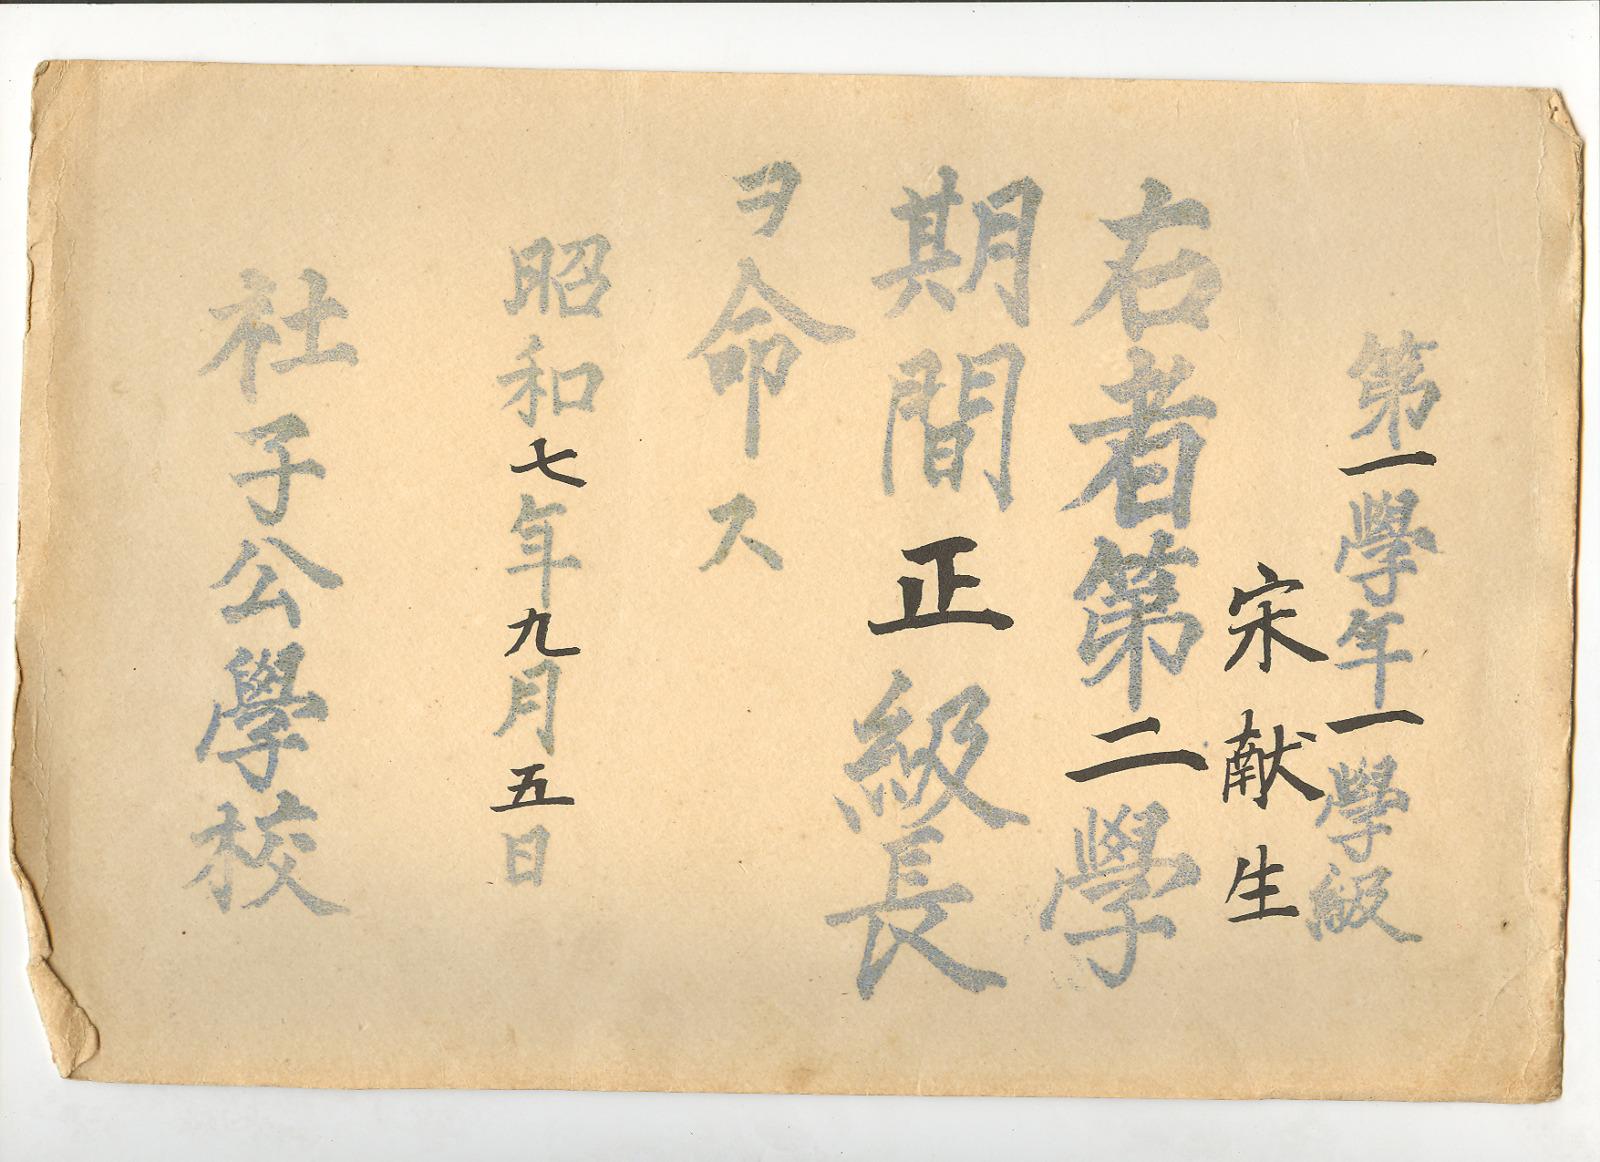 第一學年一學級
宋献生
右者第二學
期間正級長
ヲ命ス
昭和七年九月五日
社子公學校